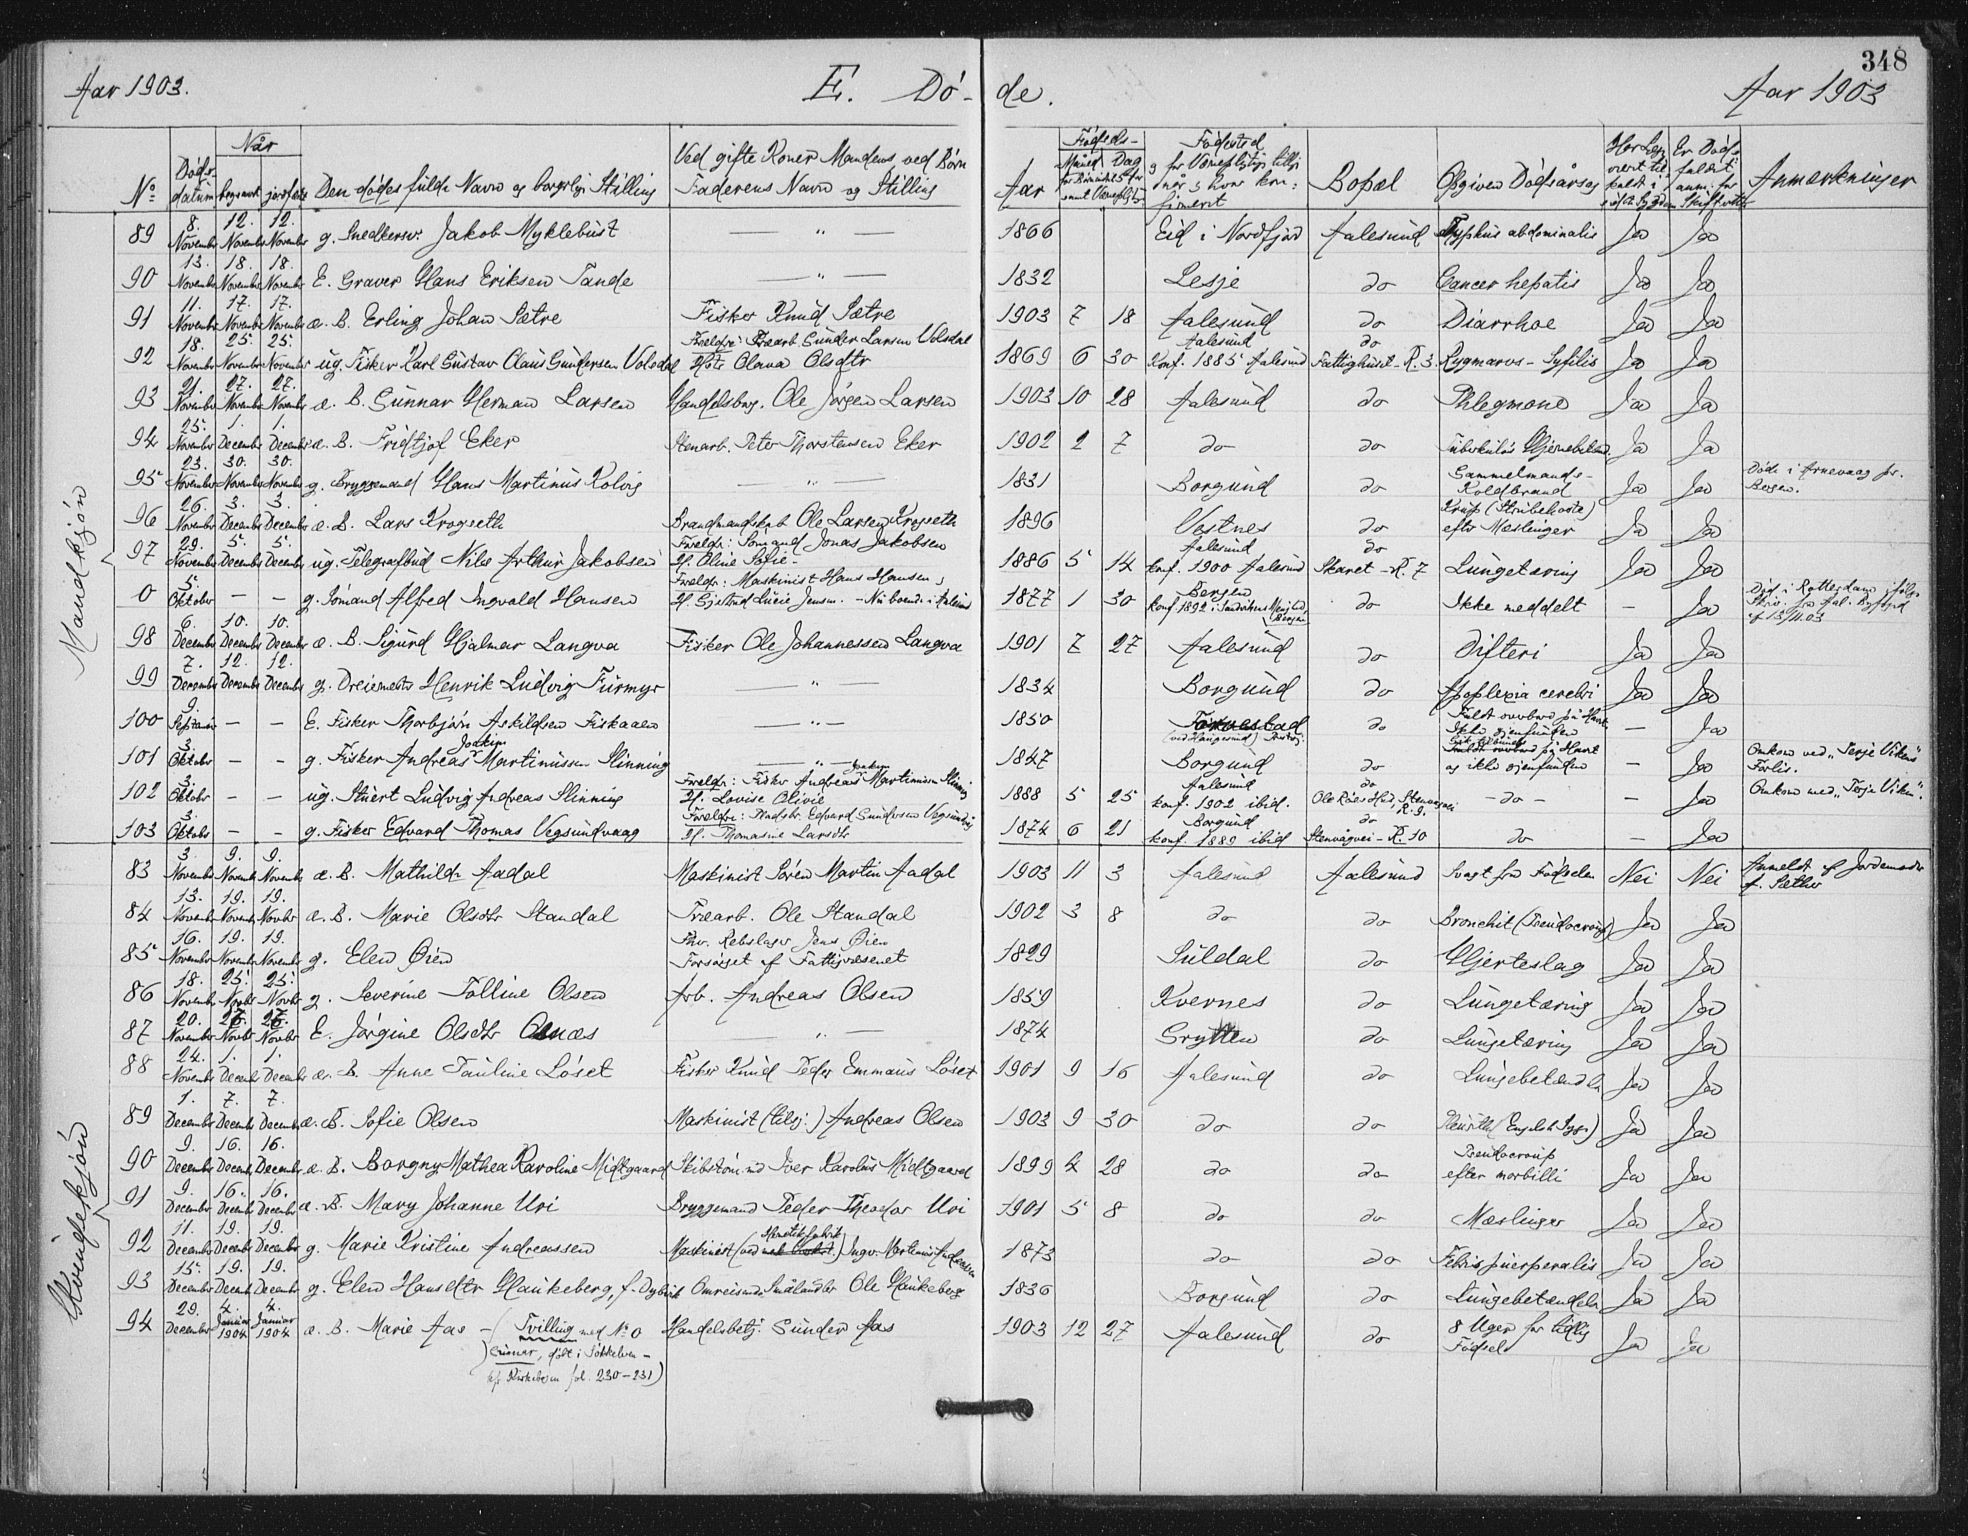 348
Aar 1903. E. Dö- de. Aar 1903
Når
No Döds-datum begravet jordfæstet Den dödes fulde Navn og borgerlige Stilling Ved gifte Koner Mandens, ved Börn Faderens Navn og Stilling Aar Födsels- Måned Dag Födested Bopæl Opgiven Dödsårsag Anmærkninger
Mandkjön
89 8. November 12. November 12. November g. Snedkersv. Jakob Myklebust — " — 1866 Eid i Nordfjord Aalesund Typhus abdominalis Ja Ja
90 13. November 18. November 18. November E. Graver Hans Eriksen Tande — " — 1832 Lesje do Cancer hepatis Ja Ja
91 11. November 17. November 17. November æ. B. Erling Johan Sætre Fisker Knud Sætre 1903 7 18 Aalesund do Diarrhoe Ja Ja
92 18. November 25. November 25. November ug. Fisker Karl Gustav Claus Gundersen Volsdal Forældre: Træarb. Gunder Larsen Volsdal Hstr Olava Olsdtr 1869 6 30 Aalesund Konf. 1885 Aalesund do Fattighuset - R. 3. Rygmarvs - Syfilis Ja Ja
93 21. November 27. November 27. November æ. B. Gunnar Herman Larsen Handelsborg. Ole Jörgen Larsen 1903 10 28 Aalesund do Phlegmone Ja Ja
94 25. November 1. December 1. December æ. B. Fridtjof Eker Stenarb. Peter Thorstensen Eker 1902 2 7 do do Tuberkulös Hjernebetænd. Ja Ja
95 23. November 30. November 30. November g. Bryggemand Hans Martinus Kolvig — " — 1831 Borgund do Gammelmands-Koldbrand Ja Ja Döde i Arnevaag pr. Bergen.
96 26. November 3. December 3. December æ. B. Lars Krogseth Brandmandskab Ole Larsen Krogseth 1896 Vestnes do Krup (Strubehoste) efter Mæslinger Ja Ja
97 29. November 5. December 5. December ug. Telegrafbud Nils Arthur Jakobsen Foreldr: Sömand Jonas Jakobsen H. Oline Sofie - 1886 5 14 Aalesund konf. 1900 Aalesund do Skaret - R. 7 Lungetæring Ja Ja
0 5. Oktober — — g. Sömand Alfred Ingvald Hansen Foreldr: Maskinist Hans Hansen, H. Gjertrud Lucie Jensen. - Nu boende i Aalesund 1877 1 30 Bergen Konf. 1892 i Sandvikens Menighed, Bergen do Ikke meddelt — Ja Död i Rotterdam ifölge Skriv. fra Aal. Byfogd af 13/11.03
98 6. December 10. December 10. December æ. B. Sigurd Hjalmar Langva Fisker Ole Johannessen Langva 1901 7 27 Aalesund do Difteri Ja Ja
99 7. December 12. December 12. December g. Dreiemester Henrik Ludvig Furmyr — " — 1834 Borgund do Apoplexia cerebri Ja Ja
100 9. — — E. Fisker Thorbjörn Askildsen Fiskaaen — " — 1850 (ved Haugesund) do Faldt overbord på Havet Ikke gjenfunden — Ja
101 3. Oktober — — g. Fisker Andreas Joakim Martinussen Slinning — " — 1847 Borgund do og ikke gjenfunden — Ja Omkom ved „Terje Vikens" Forlis.
102 3. Oktober — — ug. Stuert Ludvig Andreas Slinning Foreldr: Fisker Andreas Joakim Martinussen Slinning H. Lovise Olivie 1888 5 25 Aalesund konf. 1902 ibid. do - do - — Ja Omkom med „Terje Viken".
103 3. Oktober — — g. Fisker Edvard Thomas Vegsundvaag H. Thomasine Larsdtr 1874 6 21 Borgund konf. 1889 ibid do Stenvågvei - R. 10 do — Ja
Kvindekjön
83 3. November 9. November 9. November æ. B. Mathilde Aadal Maskinist Sören Martin Aadal 1903 11 3 Aalesund Aalesund Svagt fra Födselen Nei Nei Anmeldt af Jordemoder f. Sæther
84 13. November 19. November 19. Novbr æ. B. Marie Olsdtr Standal Træarb. Ole Standal 1902 3 8 do do Bronchit (Pseudocroup) Ja Ja
85 16. November 19. November 19. November g. Elen Öien Fhv. Rebslager Jens Öien Forsörget af Fattigvæsenet 1829 Suldal do Hjerteslag Ja Ja
86 18. November 25. Novbr 25. Novbr g. Severine Talline Olsen Arb. Andreas Olsen 1859 Kvernes do Lungetæring Ja Ja
87 20. November 27. Novbr 27. Novbr E. Jörgine Olsdtr — " — 1874 Grytten do Lungetæring Ja Ja
88 24. November 1. December 1. December æ. B. Anne Pauline Löset Fisker Knud Peder Emmaus Löset 1901 9 16 Aalesund do Lungebetændelse Ja Ja
89 1. December 7. December 7. December æ. B. Sofie Olsen Maskinist (tilsj.) Andreas Olsen 1903 9 30 do do (Engelsk Syge) Ja Ja
90 9. December 16. December 16. December æ. B. Borgny Mathea Karoline Midtgaard Skibstömmerm. Iver Karolus Midtgaard 1899 4 28 do do Pseudocroup efter morbilli Ja Ja
91 9. December 16. December 16. December æ. B. Mary Johanne Uri Bryggemand Peder Theodor Uri 1901 5 8 do do Mæslinger Ja Ja
92 11. December 19. December 19. December g. Marie Kristine Andreassen Maskinist (ved Hermetikfabrik) Ingv. Martinus Andreassen 1873 do do Febris puerperalis Ja Ja
93 15. December 19. December 19. December g. Elen Hansdtr Haukeberg, f. Dybvik Omreisende Småhandler Ole Haukeberg 1836 Borgund do Lungebetændelse Ja Ja
94 29. December 4. Januar 1904 4. Januar 1904 æ. B. Marie Aas - (Tvilling med No 0 Gunnar, födt i Sökkelven - kfr. Kirkebogen fol. 230-231) Handelsbetj. Gunder Aas 1903 12 27 Aalesund do 8 Uger for tidlig Födsel Ja Ja